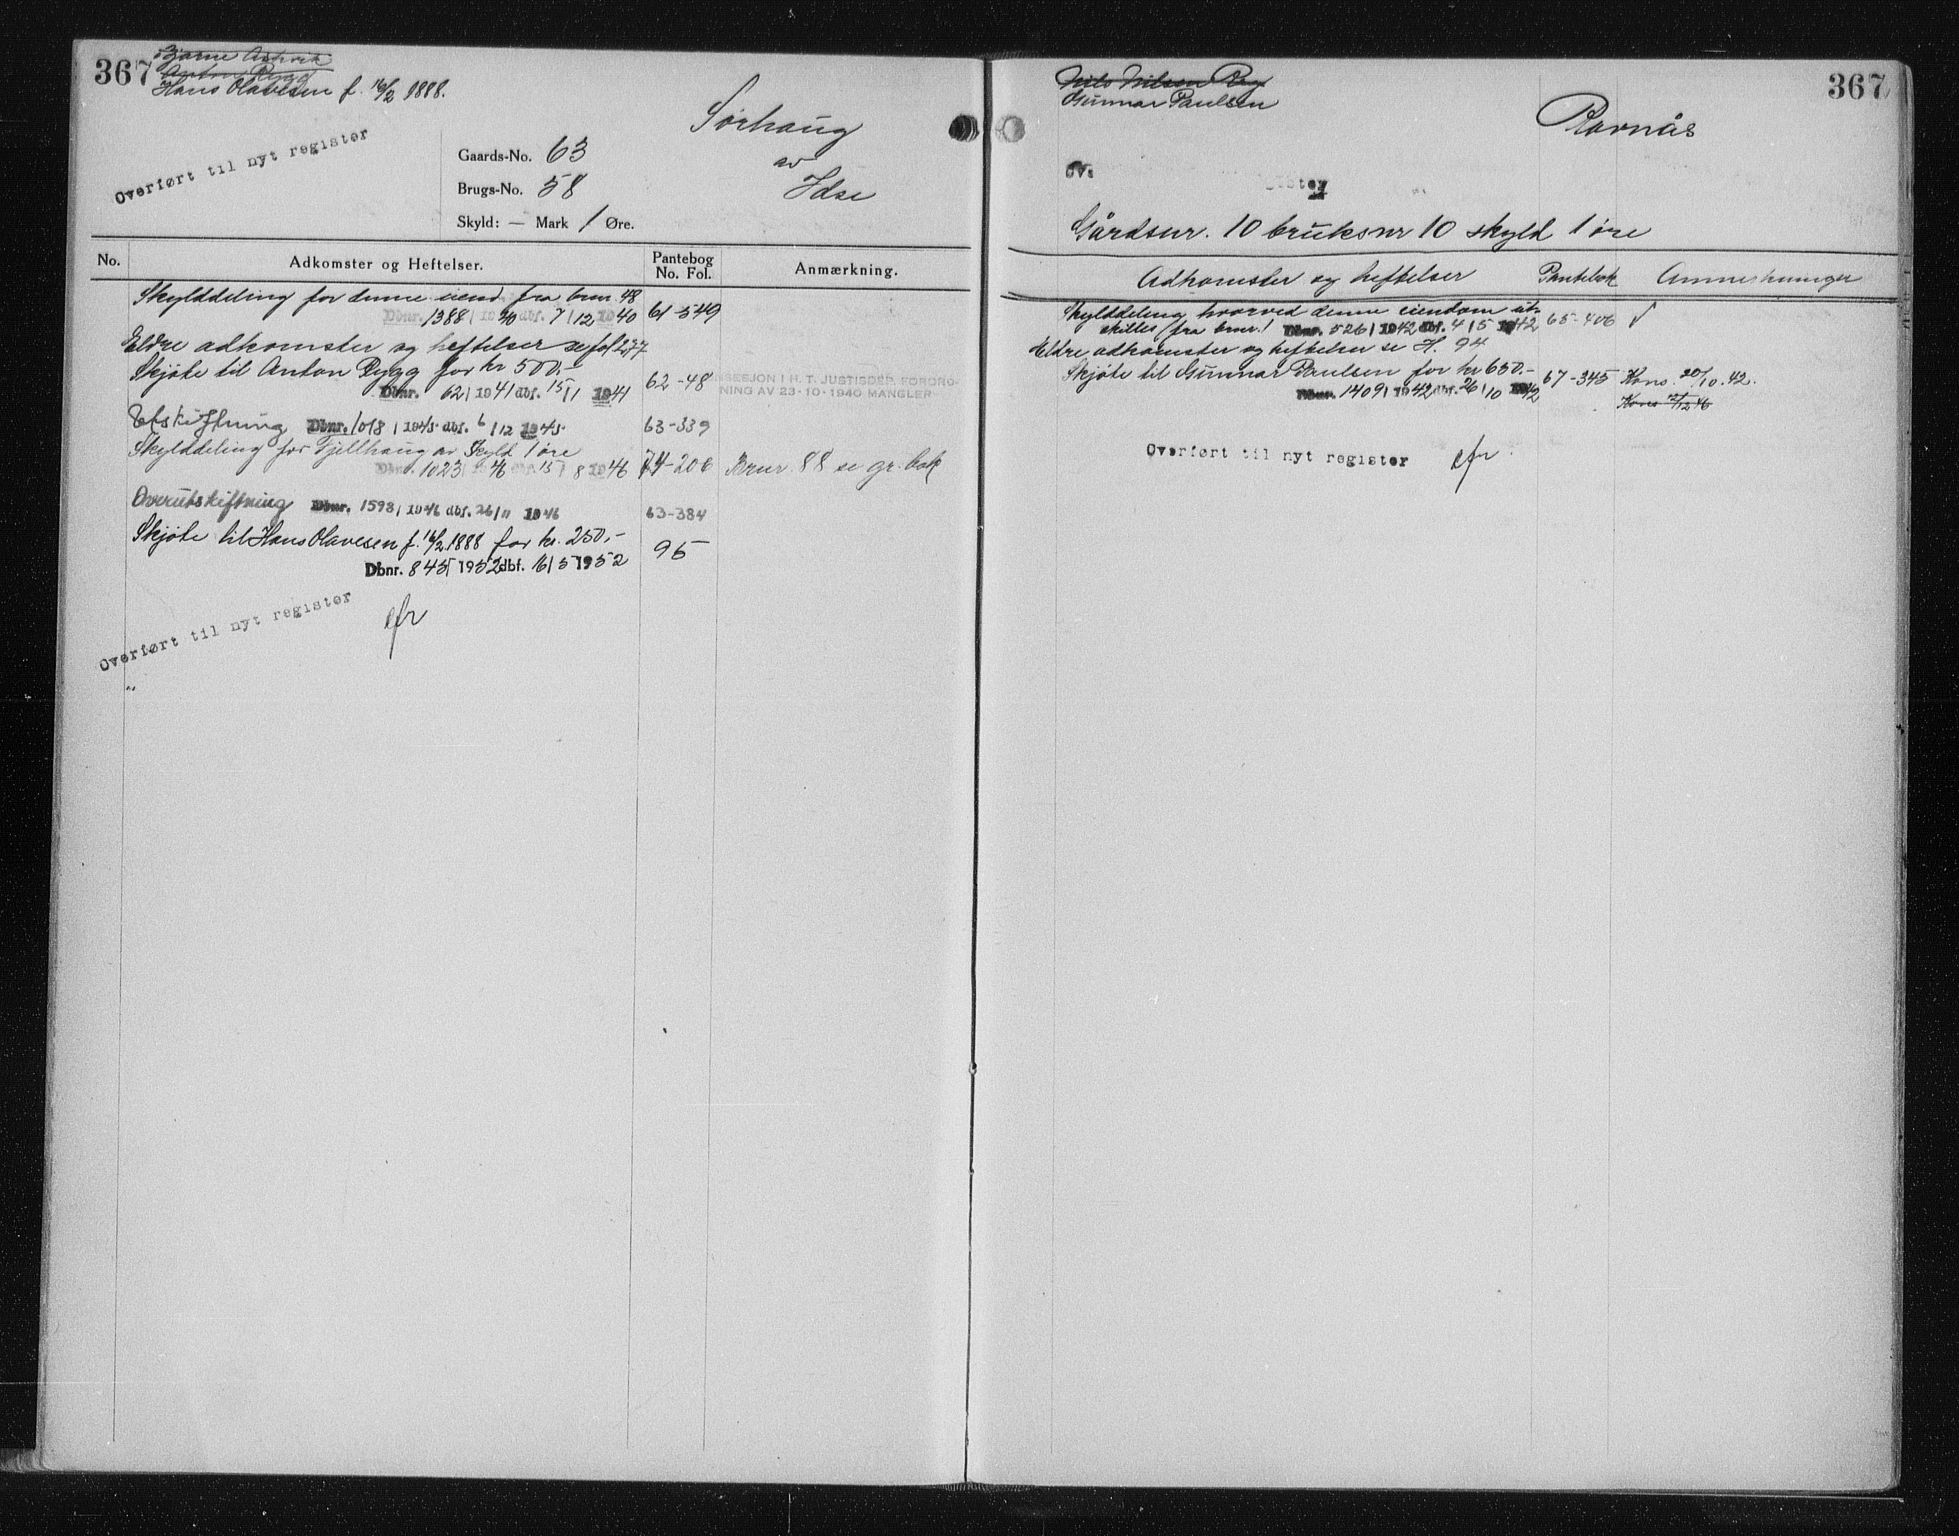 367
Bjarne Askvik
Anton Rygg
Hans Olavesen f. 16/2 1888.
Overført til nyt register
Sørhaug
av
Idse
Gaards-No. 63
Brugs-No. 58
Skyld: — Mark 1 Øre.
No. Adkomster og Heftelser. Pantebog No. Fol. Anmærkning.
Skylddeling for denne eiend. fra bnr. 48
Dbnr. 1388 / 1940 dbf. 7 / 12 1940 61-549
Eldre adkomster og heftelser se fol 237
Skjøte til Anton Rygg for kr 500,-
Dbnr. 62 / 1941 dbf. 15 / 1 1941 62-48
I H. T. JUSTISDEP. FORORD-
NING AV 23-10-1940 MANGLER
Utskiftning Dbnr. 1018 / 1945 dbf. 6 / 12 1945 63-339
Skylddeling for Fjellhaug av Skyld 1 øre
Dbnr. 1023 / 1946 dbf. 15 / 8 1946 74-206 Bnr. 88 se gr. bok
Overutskiftning Dbnr. 1593 / 1946 dbf. 26 / 11 1946 63-384
Skjøte til Hans Olavesen f. 16/2 1888 for kr. 250,-
Dbnr. 845 / 1952 dbf. 16 / 5 1952 95
Overført til nyt register
efr
367
Nils Nilsen Reg
Gunnar Paulsen
Ravnås
Ov.
Gårdsnr. 10 bruksnr 10 skyld 1 øre
Adkomster og heftelser Pantebok Anmerkninger
Skylddeling hvorved denne eiendom ut-
skilles fra bnr. 1 Dbnr. 526 / 1942 dbf. 4 / 5 1942 65-406 √
Eldre adkomster og heftelser se H. 94
Skjøte til Gunnar Paulsen for kr 650.-
Dbnr. 1409 / 1942 dbf. 26 / 10 1942 67-345 Kons. 20/10.42.
Kons 12/12 46
Overført til nyt register efr